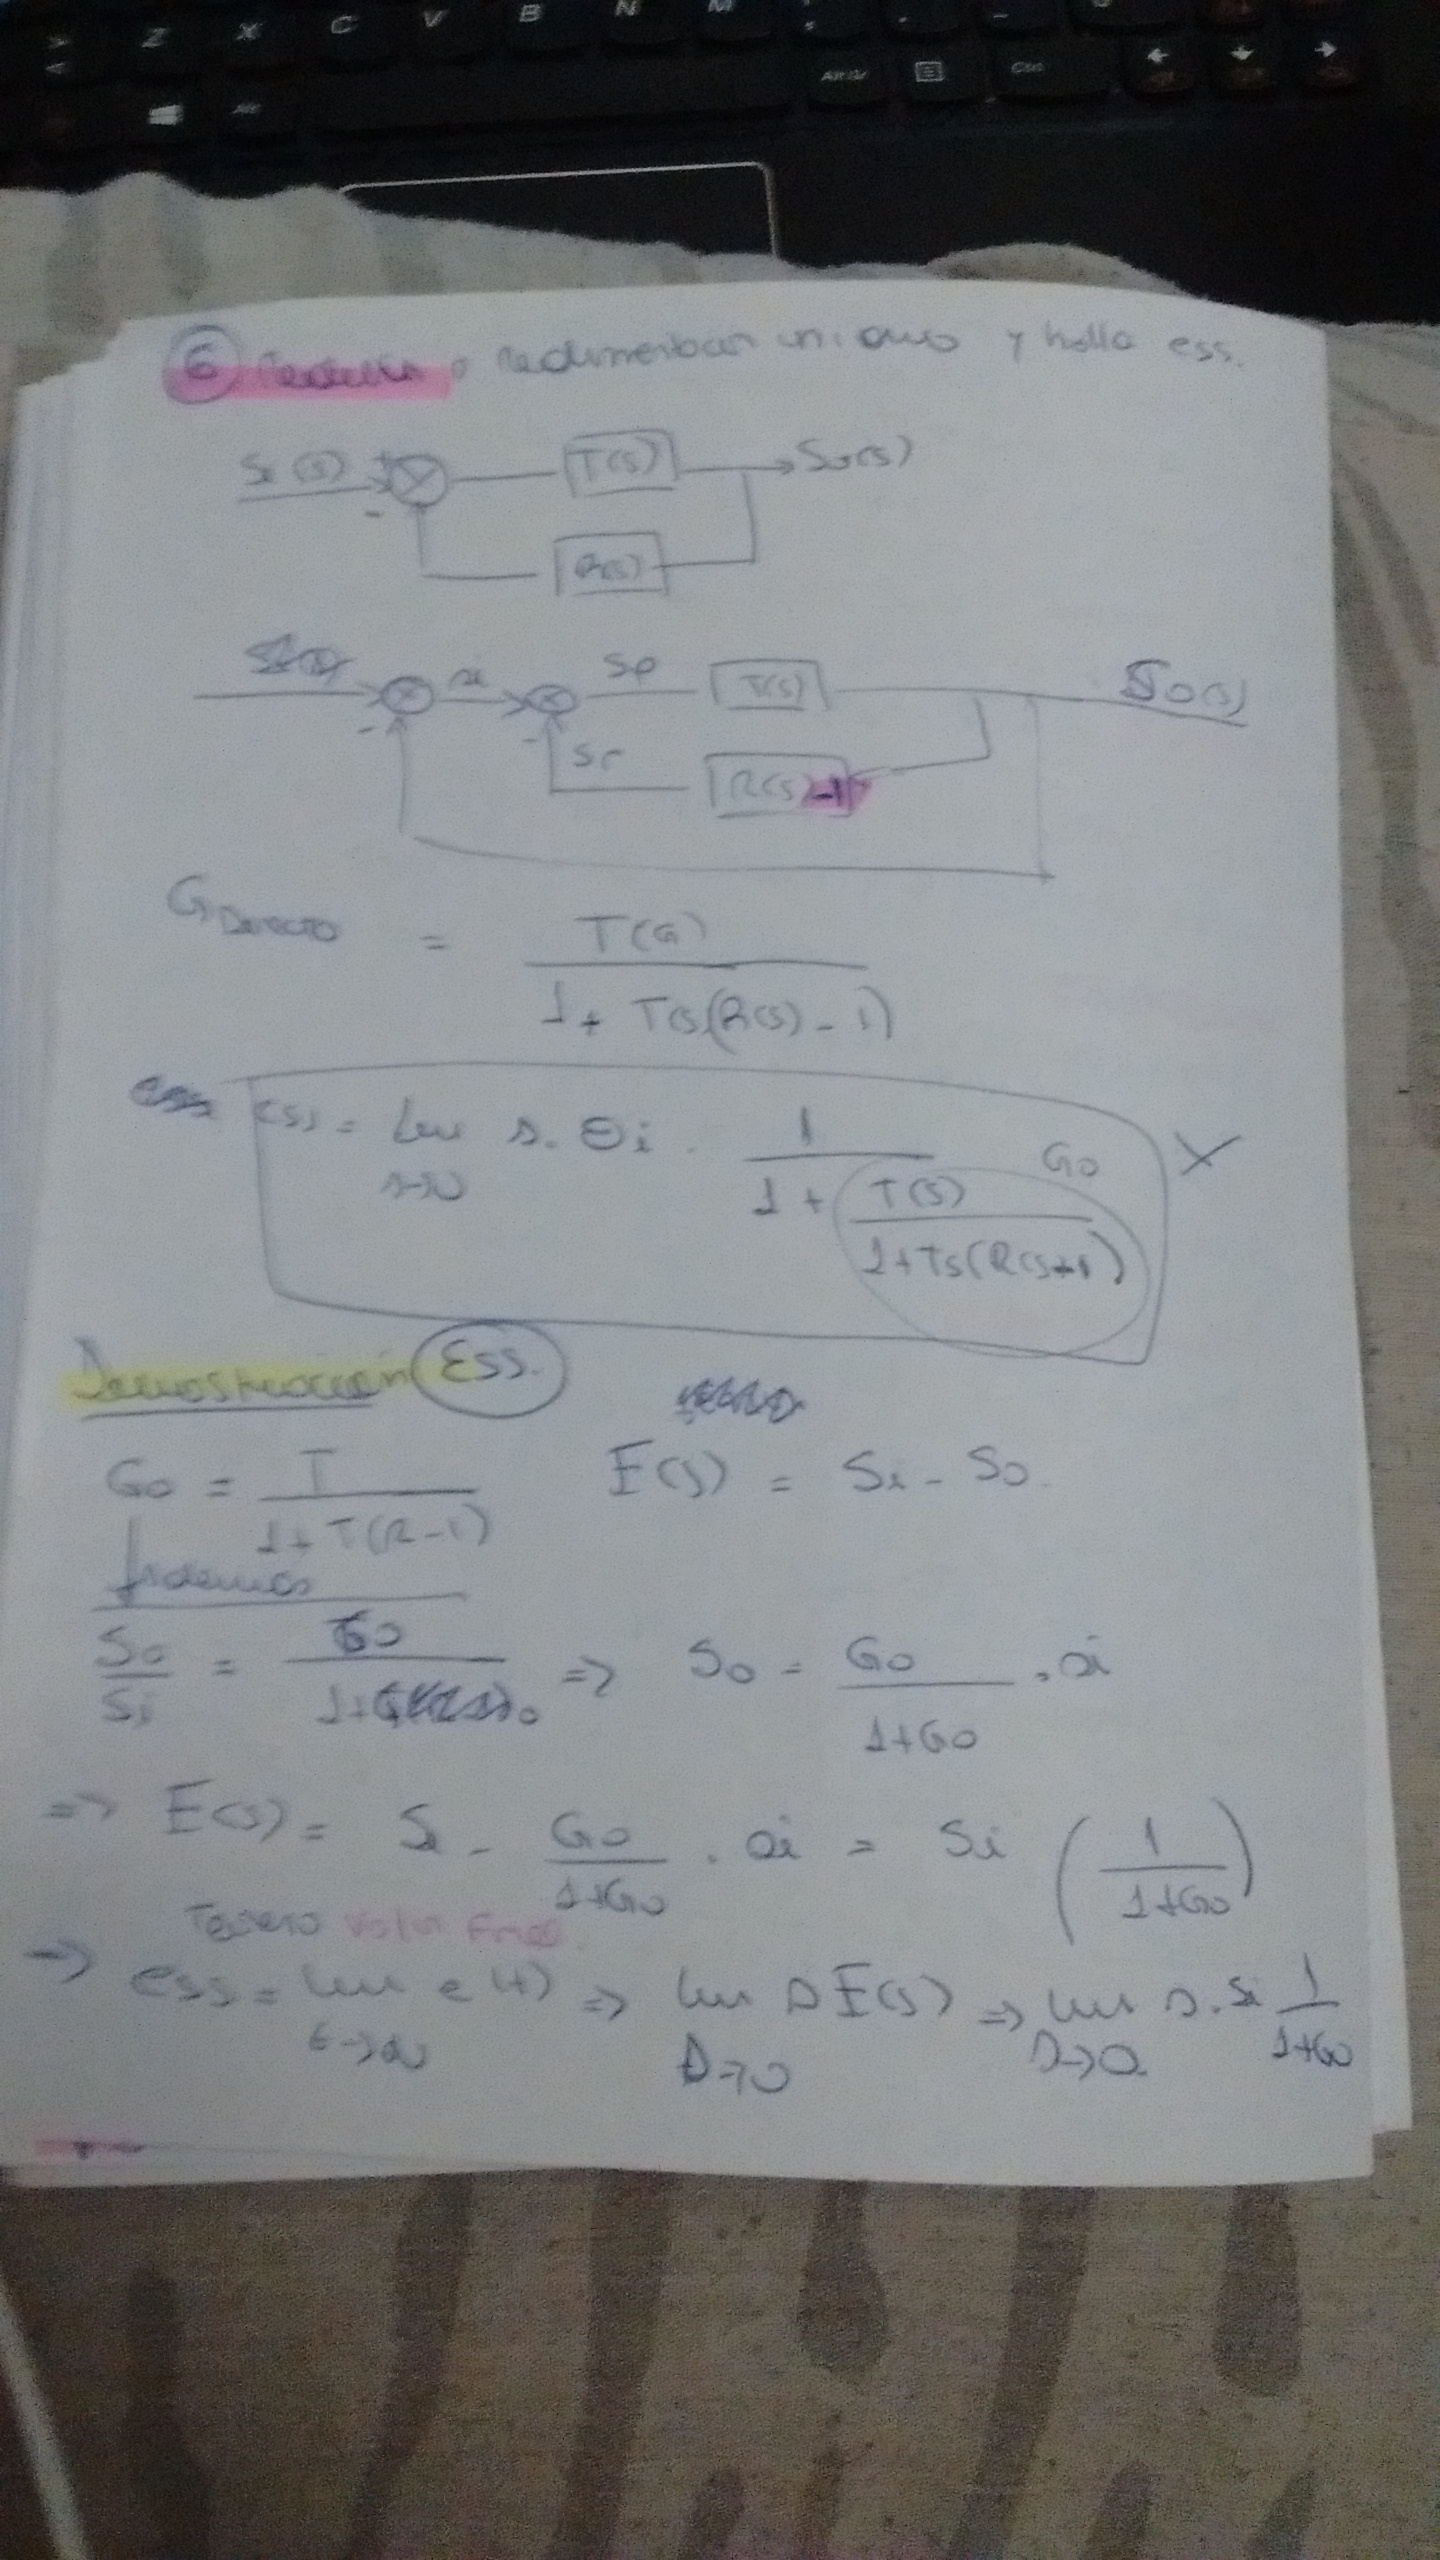 Z X C V B N M
Alt Alt Gr Ctrl
6 a realimentacion unitaria y halla ess.
Si(s) + T(s) So(s)
-
R(s)
Se T(s) So(s)
- - Sr
R(s)-1
G Directo = T(s) / 1 + T(s)(R(s) - 1)
ess (s) = lim s→0 s. θi . 1 / 1 + T(s) / 1+Ts(R(s)+1) Go X
Demostración Ess.
Go = T / 1 + T(R-1) E(s) = Si - So
So / Si = Go / 1+Go => So = Go / 1+Go . si
=> E(s) = Si - Go / 1+Go . si = Si ( 1 / 1+Go )
Teorema Valor Final
=> ess = lim t→∞ e(t) => lim s→0 s E(s) => lim s→0 s. Si 1 / 1+Go